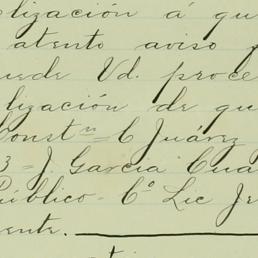 lización á qu
atento aviso p
uede Vd. proce
lización de qu
Const.ⁿ C Juárez
3 - J. García Cua
Público - Cº Lic Je
ente.